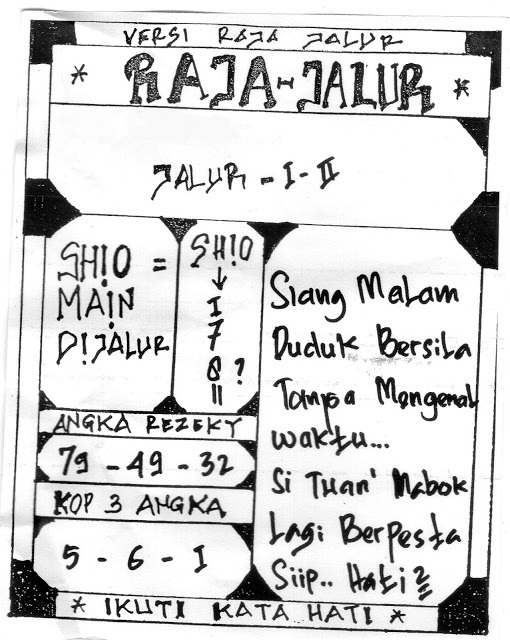 VERSI RAJA JALUR
* RAJA-JALUR *
JALUR - I - II
SH!O =
MAIN
D!JALUR
SH!O
↓
I
7
8 ?
II
ANGKA REZEKY
79 - 49 - 32
KOP 3 ANGKA
5 - 6 - I
Siang Malam
Duduk Bersila
Tampa Mengenal
waktu...
Si Tuan' Mabok
Lagi Berpesta
Siip.. Hati²
* IKUTI KATA HATI *